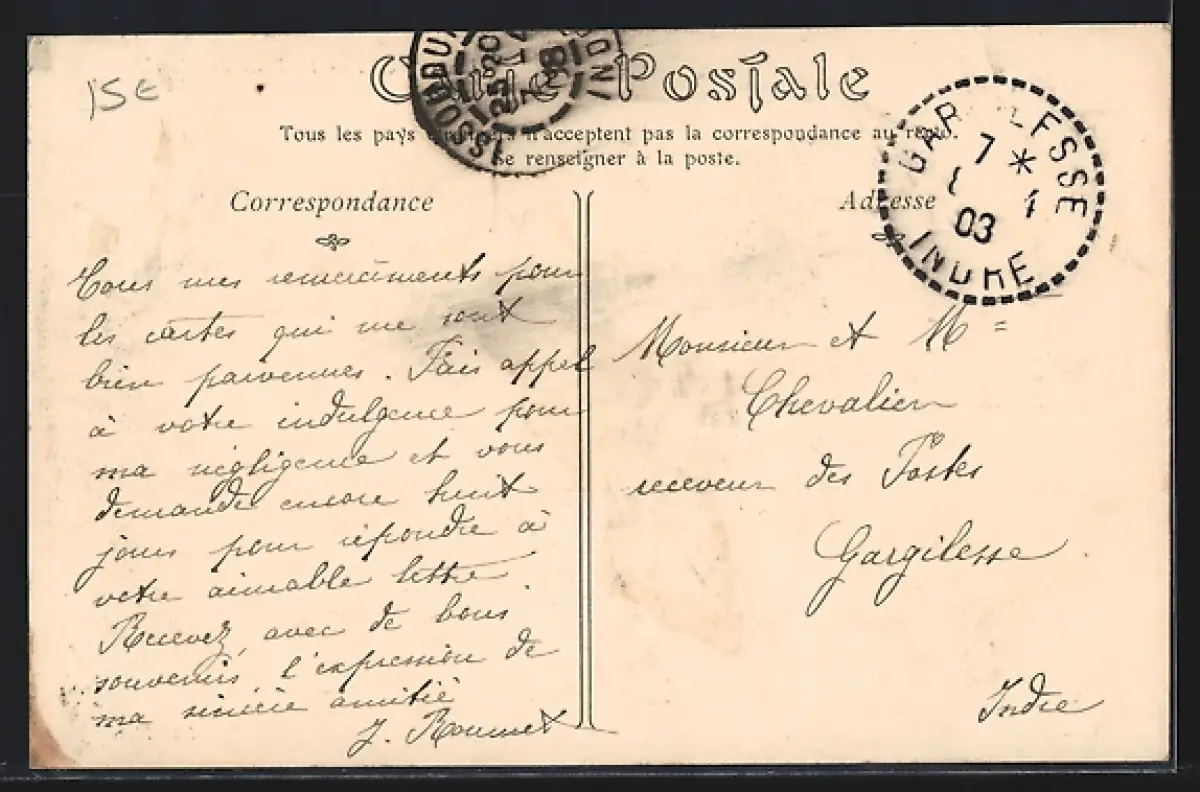 15€
Carte Postale
Tous les pays étrangers n'acceptent pas la correspondance au recto.
Se renseigner à la poste.
Correspondance
Adresse
ISSOUDUN
INDRE
GARGILESSE
7 *
03
INDRE
Tous mes remerciements pour
les cartes qui me sont
bien parvenues. Fais appel
à votre indulgence pour
ma négligence et vous
demande encore huit
jours pour répondre à
votre aimable lettre.
Recevez, avec de bons
souvenirs l'expression de
ma sincère amitié
J.
Monsieur et Mᵐᵉ
Chevalier
receveur des Postes
Gargilesse
Indre